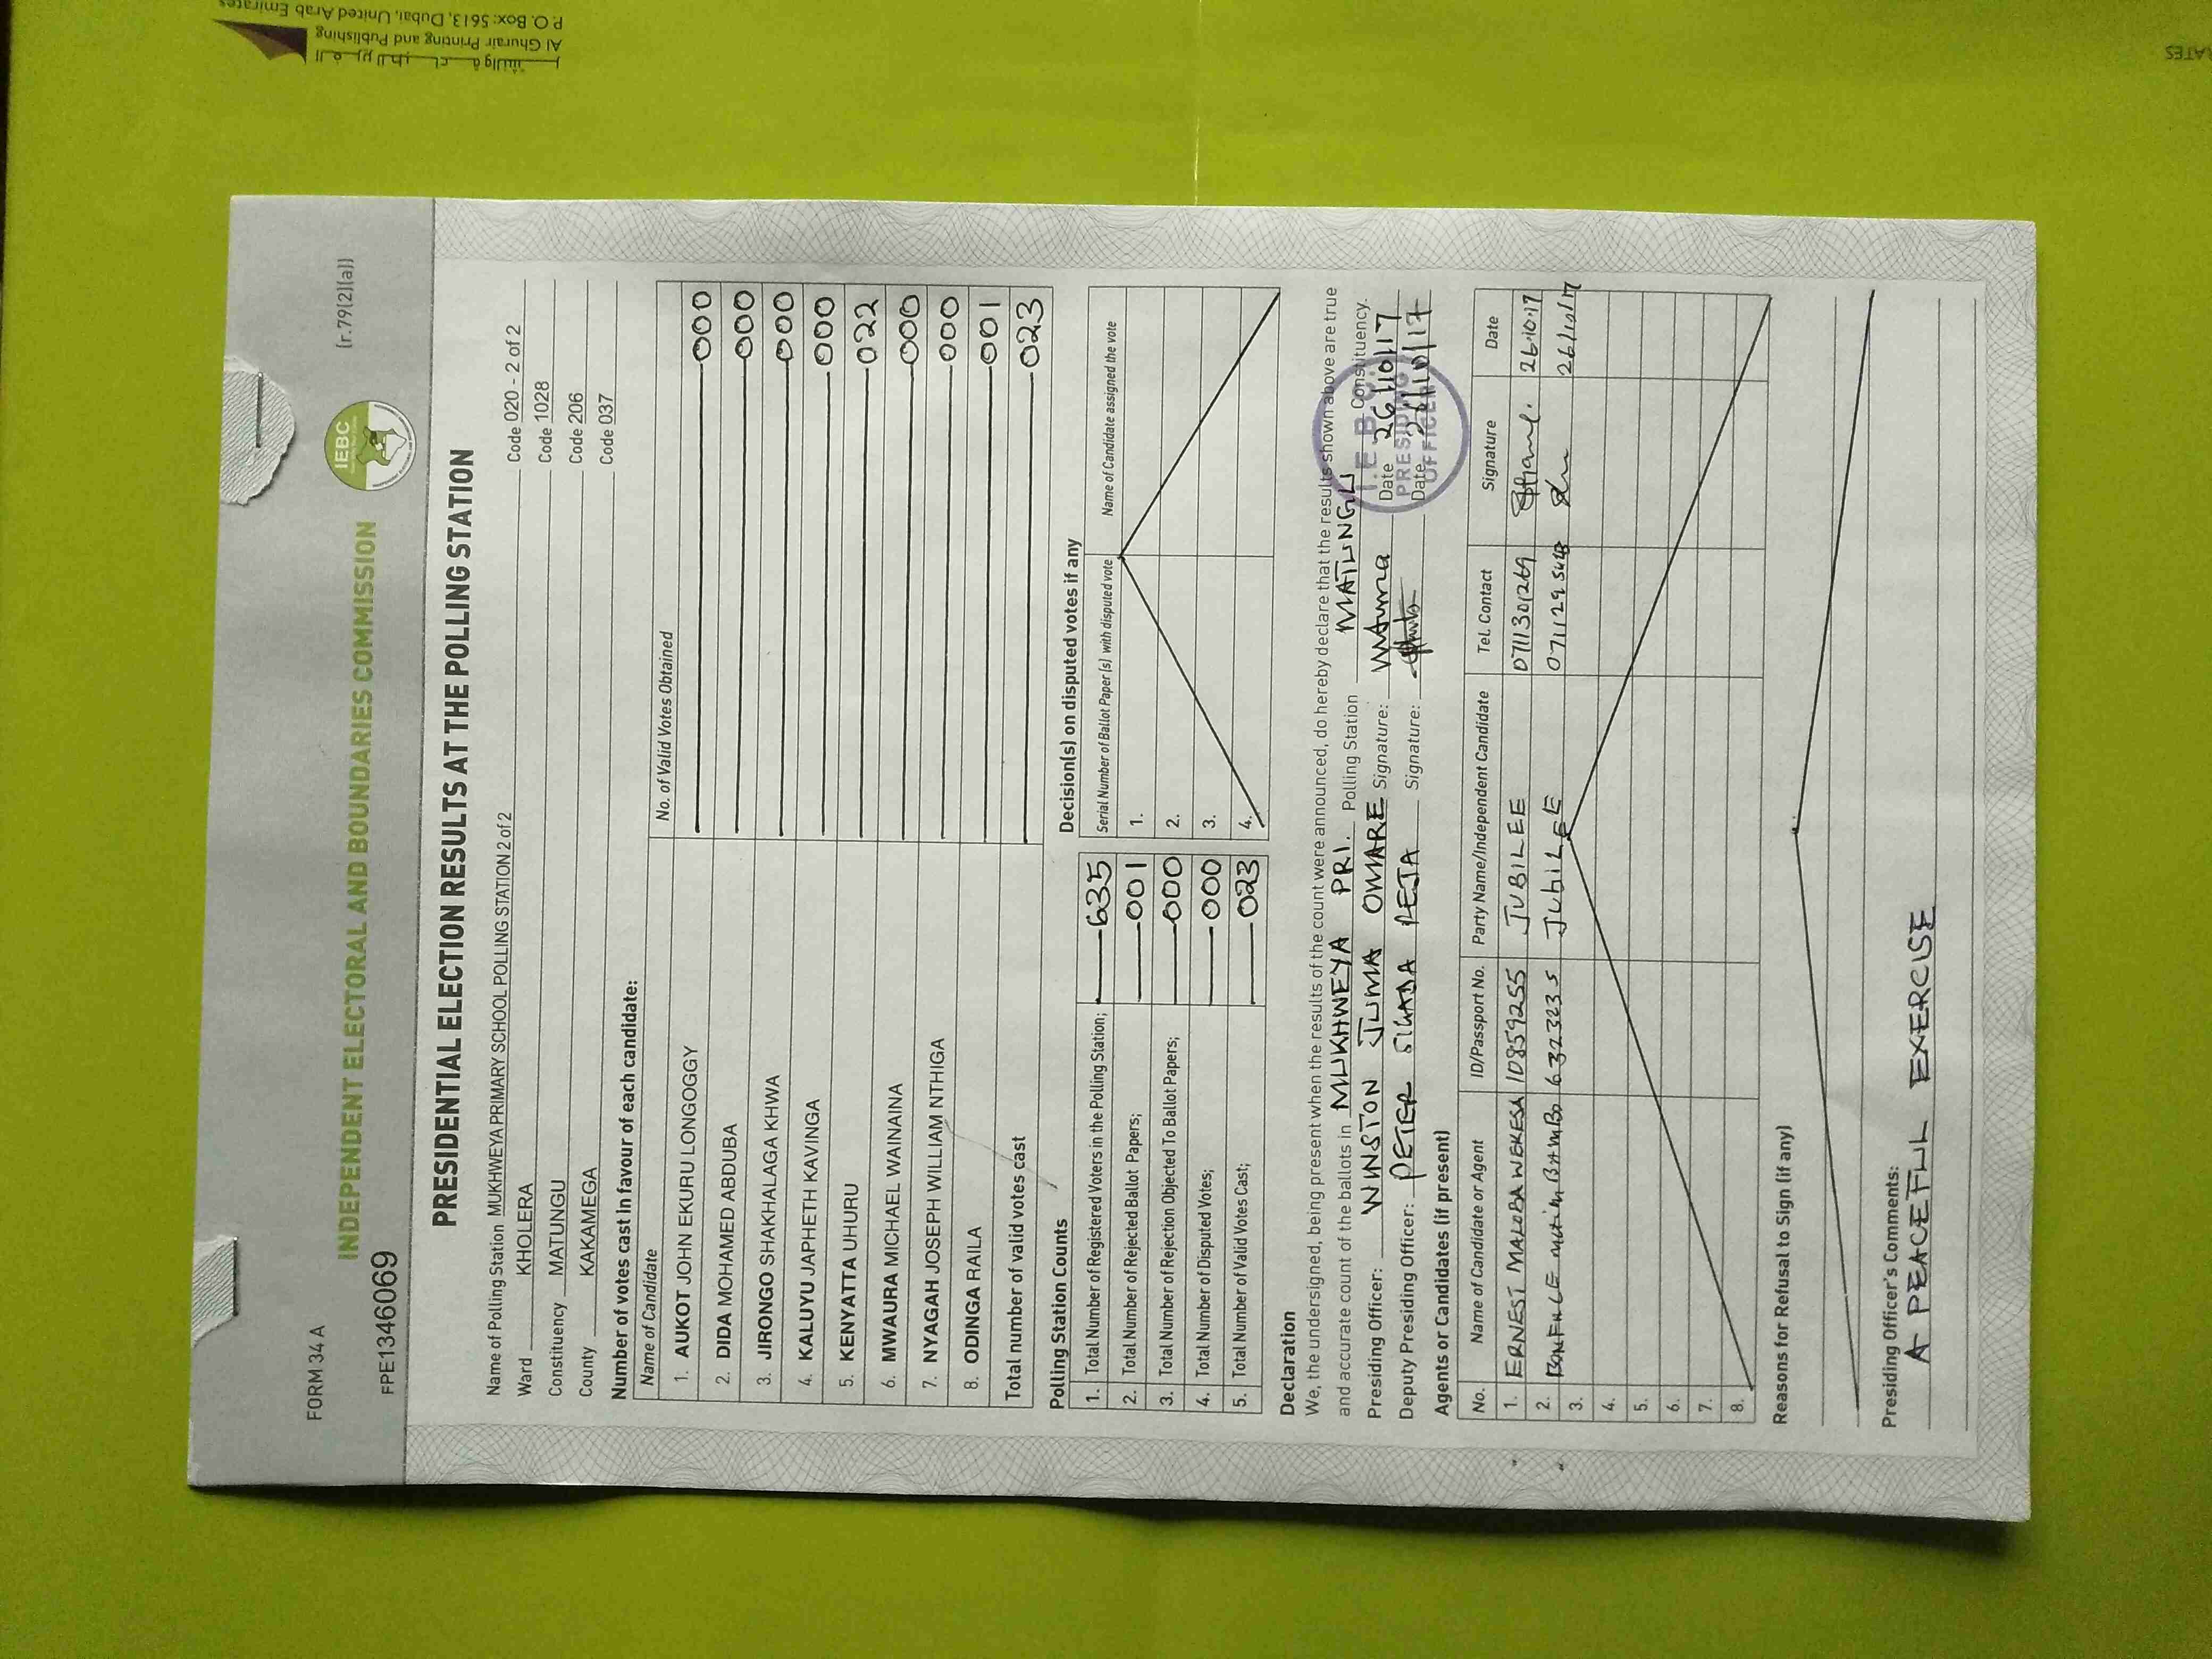 FORM 34 A
(r.79(2)(a))
INDEPENDENT ELECTORAL AND BOUNDARIES COMMISSION
IEBC
FPE1346069
PRESIDENTIAL ELECTION RESULTS AT THE POLLING STATION
Name of Polling Station MUKHWEYA PRIMARY SCHOOL POLLING STATION 2 of 2 Code 020 - 2 of 2
Ward KHOLERA Code 1028
Constituency MATUNGU Code 206
County KAKAMEGA Code 037
Number of votes cast in favour of each candidate:
Name of Candidate No. of Valid Votes Obtained
1. AUKOT JOHN EKURU LONGOGGY 000
2. DIDA MOHAMED ABDUBA 000
3. JIRONGO SHAKHALAGA KHWA 000
4. KALUYU JAPHETH KAVINGA 000
5. KENYATTA UHURU 022
6. MWAURA MICHAEL WAINAINA 000
7. NYAGAH JOSEPH WILLIAM NTHIGA 000
8. ODINGA RAILA 001
Total number of valid votes cast 023
Polling Station Counts
1. Total Number of Registered Voters in the Polling Station; 635
2. Total Number of Rejected Ballot Papers; 001
3. Total Number of Rejection Objected To Ballot Papers; 000
4. Total Number of Disputed Votes; 000
5. Total Number of Valid Votes Cast; 023
Decision(s) on disputed votes if any
Serial Number of Ballot Paper(s) with disputed vote Name of Candidate assigned the vote
1.
2.
3.
4.
Declaration
We, the undersigned, being present when the results of the count were announced, do hereby declare that the results shown above are true
and accurate count of the ballots in MUKHWEYA PRI. Polling Station MATUNGU Constituency.
Presiding Officer: WINSTON JUMA OMARE Signature: Date 26/10/17
Deputy Presiding Officer: PETER Signature: Date 26/10/17
I.E.B.C
PRESIDING
OFFICER
Agents or Candidates (if present)
No. Name of Candidate or Agent ID/Passport No. Party Name/Independent Candidate Tel. Contact Signature Date
1. ERNEST MALOBA WEKESA 10859255 JUBILEE 0711301269 26.10.17
2. 6323235 JUBILEE 26/10/17
3.
4.
5.
6.
7.
8.
Reasons for Refusal to Sign (if any)
Presiding Officer's Comments:
A PEACEFUL EXERCISE
Al Ghurair Printing and Publishing
P. O. Box: 5613, Dubai, United Arab Emirates